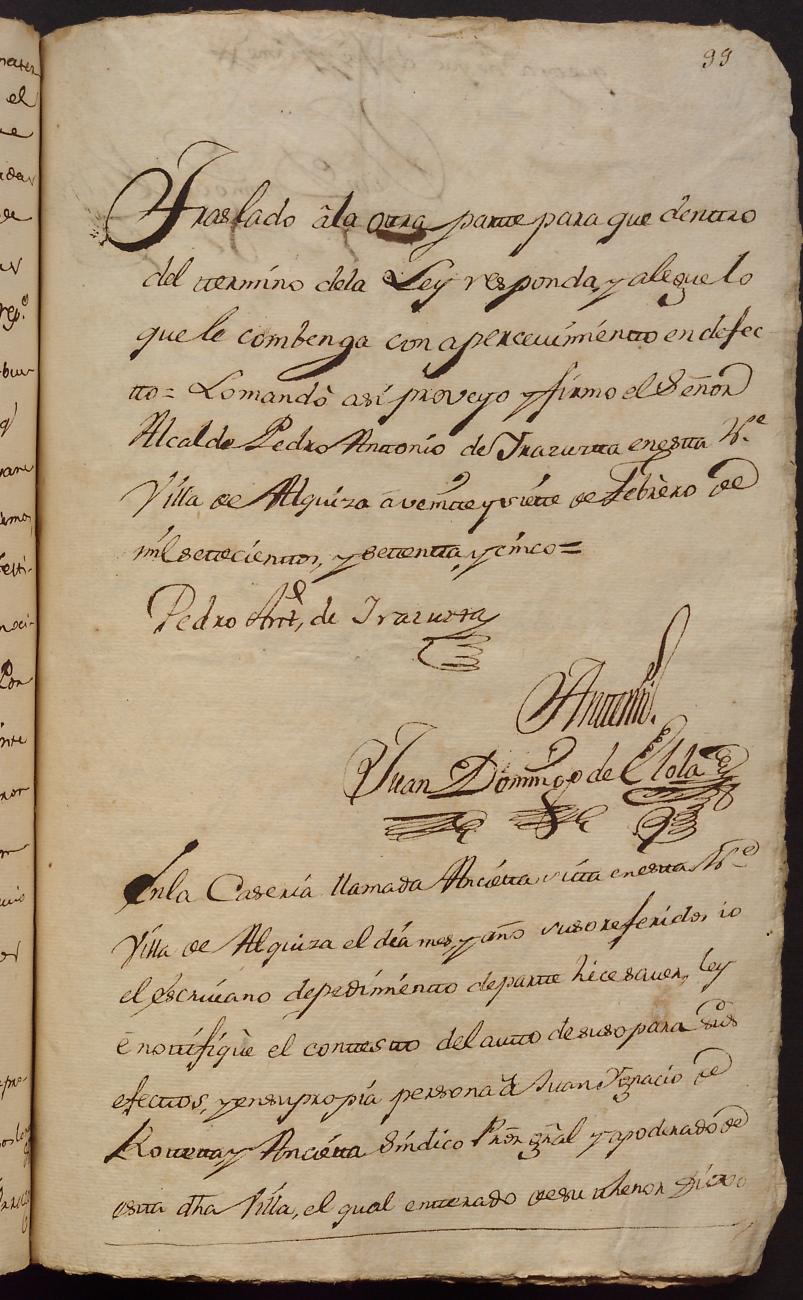 99
Traslado â la otra parte para que dentro
del termino dela Ley responda, y alegue lo
que le combenga con apercevimiento en defec
to= Lo mandò asi proveyo y firmo el Señor
Alcalde Pedro Antonio de Irazuzta en esta N.e
Villa de Alquiza â veinte y siete de Febrero de
mil setecientos, y setenta, y cinco=
Pedro Ant, de Irazuzta
Antemi.
Juan Domingo de Elola
En la Caseria llamada Ancieta sita en esta N.e
Villa de Alquiza el dia mes, y año suso referidos io
el escrivano de pedimiento de parte hice saver, ley
è notifiqûe el contesto del auto de suso para sus
efectos, y en su propia persona â Juan Ignacio de
Roteta y Ancieta Sindico Pror gral y apoderado de
esta dha Villa, el qual enterado de su thenor Dixo